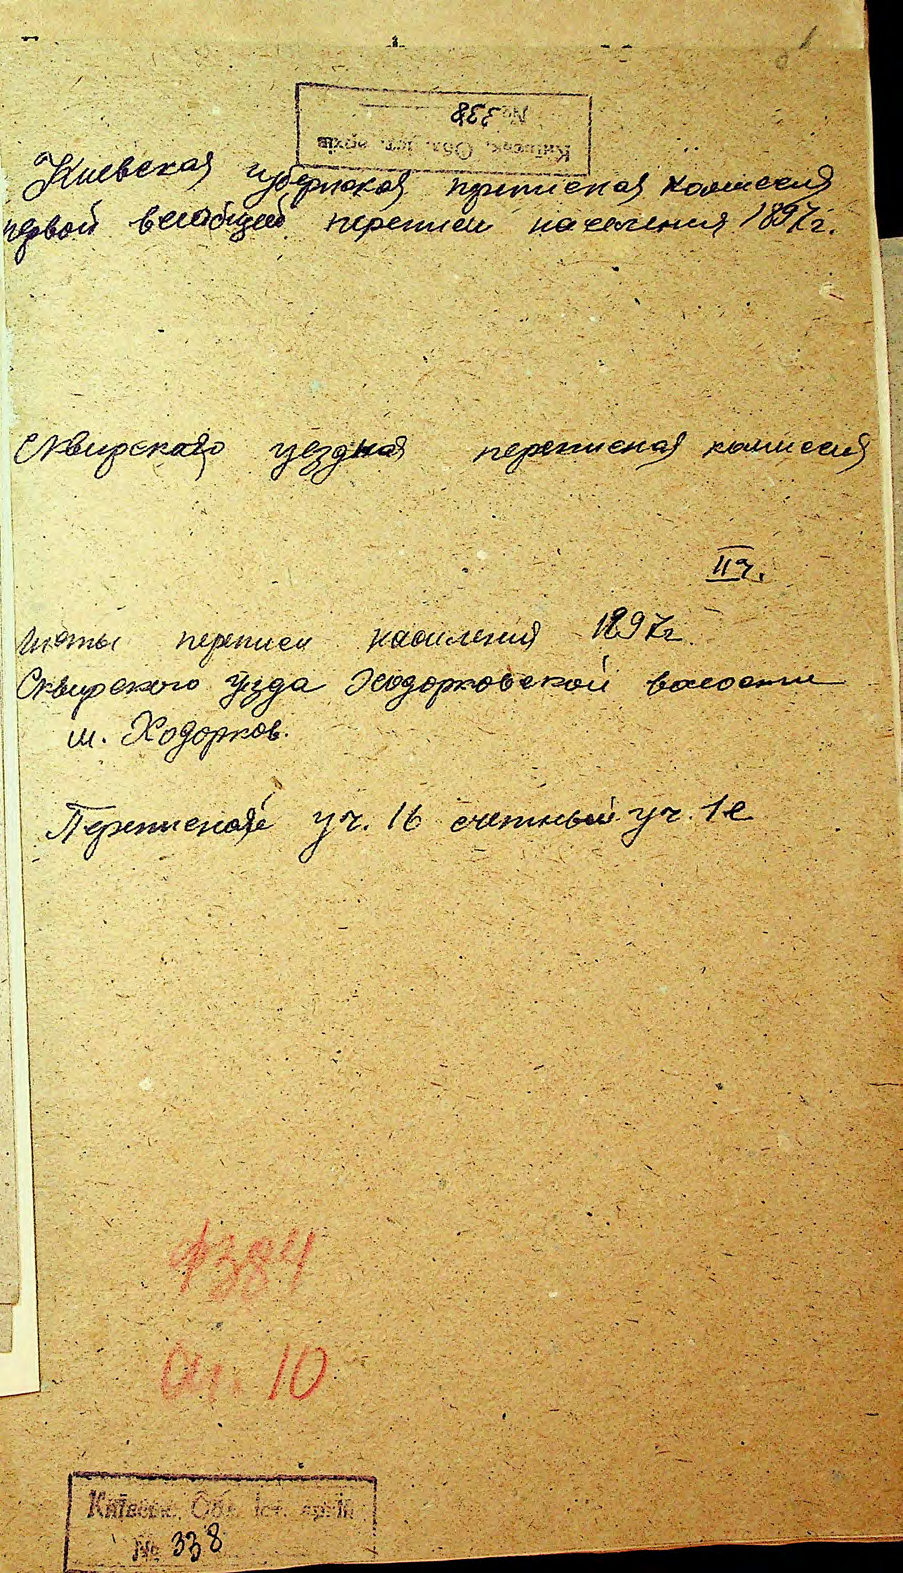 1
Київськ. Обл. іст. архів
№ 338
Киевская губернская переписная комиссия
первой всеобщей переписи населения 1897г.
Сквирского уездная переписная комиссия
II ч.
Листы переписи населения 1897г
Сквирского уезда Ходорковской волости
м. Ходорков.
Переписной уч. 16 счетный уч. 1е
Ф384
Оп. 10
Київськ. Обл. іст. архів
№ 338